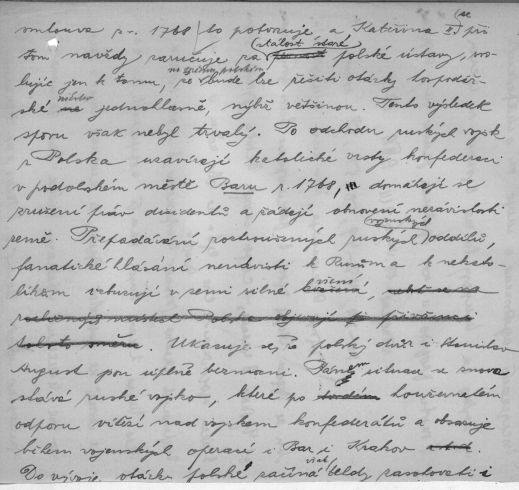 smlouva z r. 1768 to potvrzuje a Kateřina II při
tom navždy zaručuje za stálost staré polské ústavy, svo-
lujíc jen k tomu, že na sněmu polském bude lze řešiti otázky hospodář-
ské nikoliv jednohlasně, nýbrž většinou. Tento výsledek
sporu však nebyl trvalý. Po odchodu ruských vojsk
z Polska uzavírají katolické vrstvy konfederaci
v podolském městě Baru r. 1768, domáhají se
zrušení práv disidentů a žádají obnovení nezávislosti
země. Přepadávání roztroušených ruských vojenských oddílů,
fanatické hlásání nenávisti k Rusům a k nekato-
líkům vzbuzují v zemi silné vření,
. Ukazuje se, že polský dvůr i Stanislav
August jsou úplně bezmocni. Pánem situace se znova
stává ruské vojsko, které po houževnatém
odporu vítězí nad vojskem konfederátů a obsazuje
během vojenských operací i Bar i Krakov
Do vývoje otázky polské začíná však tehdy zasahovati i